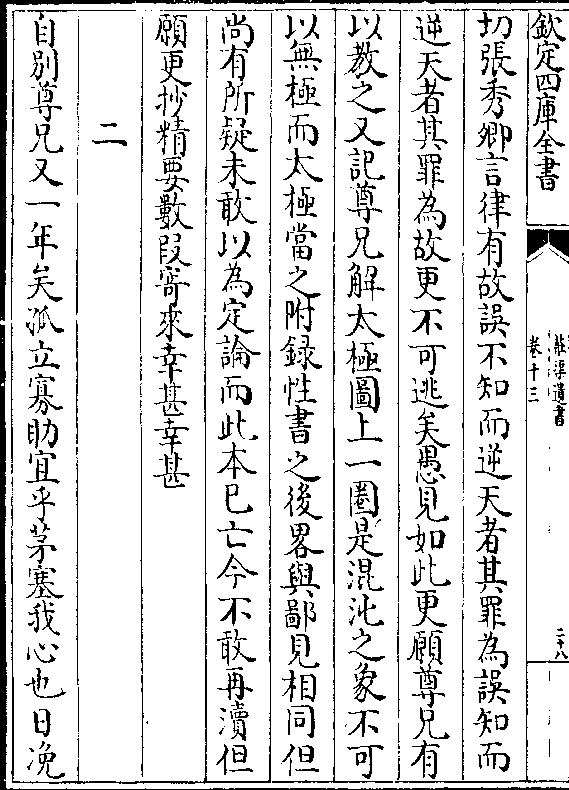 欽定四庫全書
莊渠遺書
卷十三
二十八
切張秀卿言律有故誤不知而逆天者其罪為誤知而
逆天者其罪為故更不可逃矣愚見如此更願尊兄有
以教之又記尊兄解太極圖上一圈是混沌之象不可
以無極而太極當之附錄性書之後畧與鄙見相同但
尚有所疑未敢以為定論而此本已亡今不敢再瀆但
願更抄精要數段寄來幸甚幸甚
二
自別尊兄又一年矣孤立寡助宜乎茅塞我心也日俛